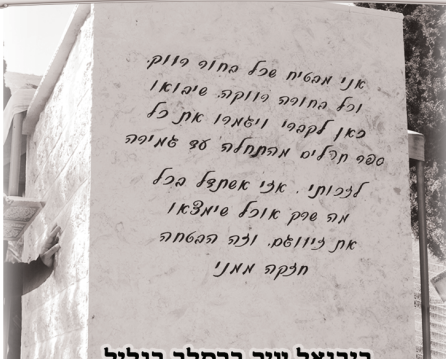 אני מבטיח שכל בחור רווק,
וכל בחורה רווקה, שיבואו
כאן לקברי ויגמרו את כל
ספר תהלים מהתחלה עד גמירה
לזכותי, אזי אשתדל בכל
מה שרק אוכל שימצאו
את זיווגם, וזה הבטחה
חזקה ממני